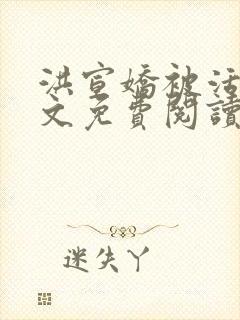 洪宣嬌被活
文免費閱讀
迷失丫